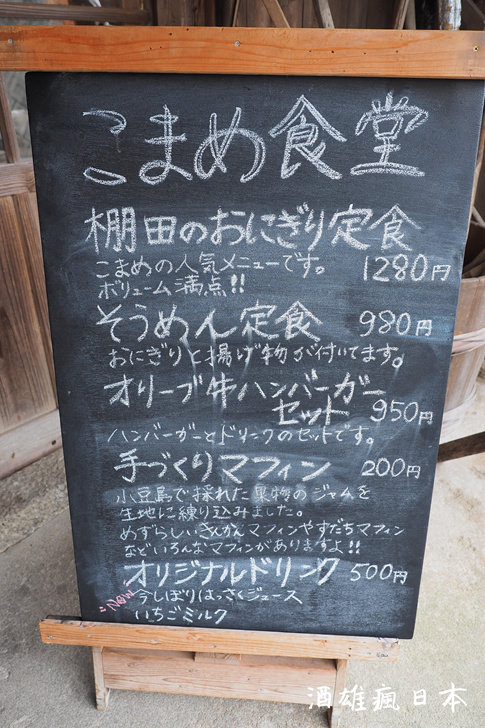 こまめ食堂
棚田のおにぎり定食
こまめの人気メニューです。 1280円
ボリューム満点!!
そうめん定食 980円
おにぎりと揚げ物が付いてます。
オリーブ牛ハンバーガー
セット 950円
ハンバーガーとドリンクのセットです。
手づくりマフィン 200円
小豆島で採れた果物のジャムを
生地に練り込みました。
めずらしいきんかんマフィンやすだちマフィン
などいろんなマフィンがありますよ!!
オリジナルドリンク 500円
"New 今しぼりはっさくジュース
いちごミルク
酒雄瘋日本